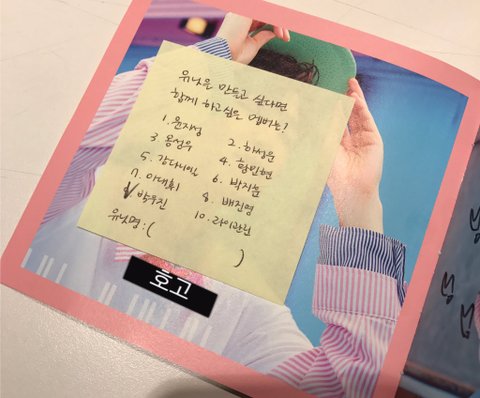 유닛을 만들고 싶다면
함께 하고싶은 멤버는?
1. 윤지성 2. 하성운
3. 옹성우 4. 황민현
5. 강다니엘 6. 박지훈
7. 이대휘 8. 배진영
✓ 박우진 10. 라이관린
유닛명 : ( )
호고